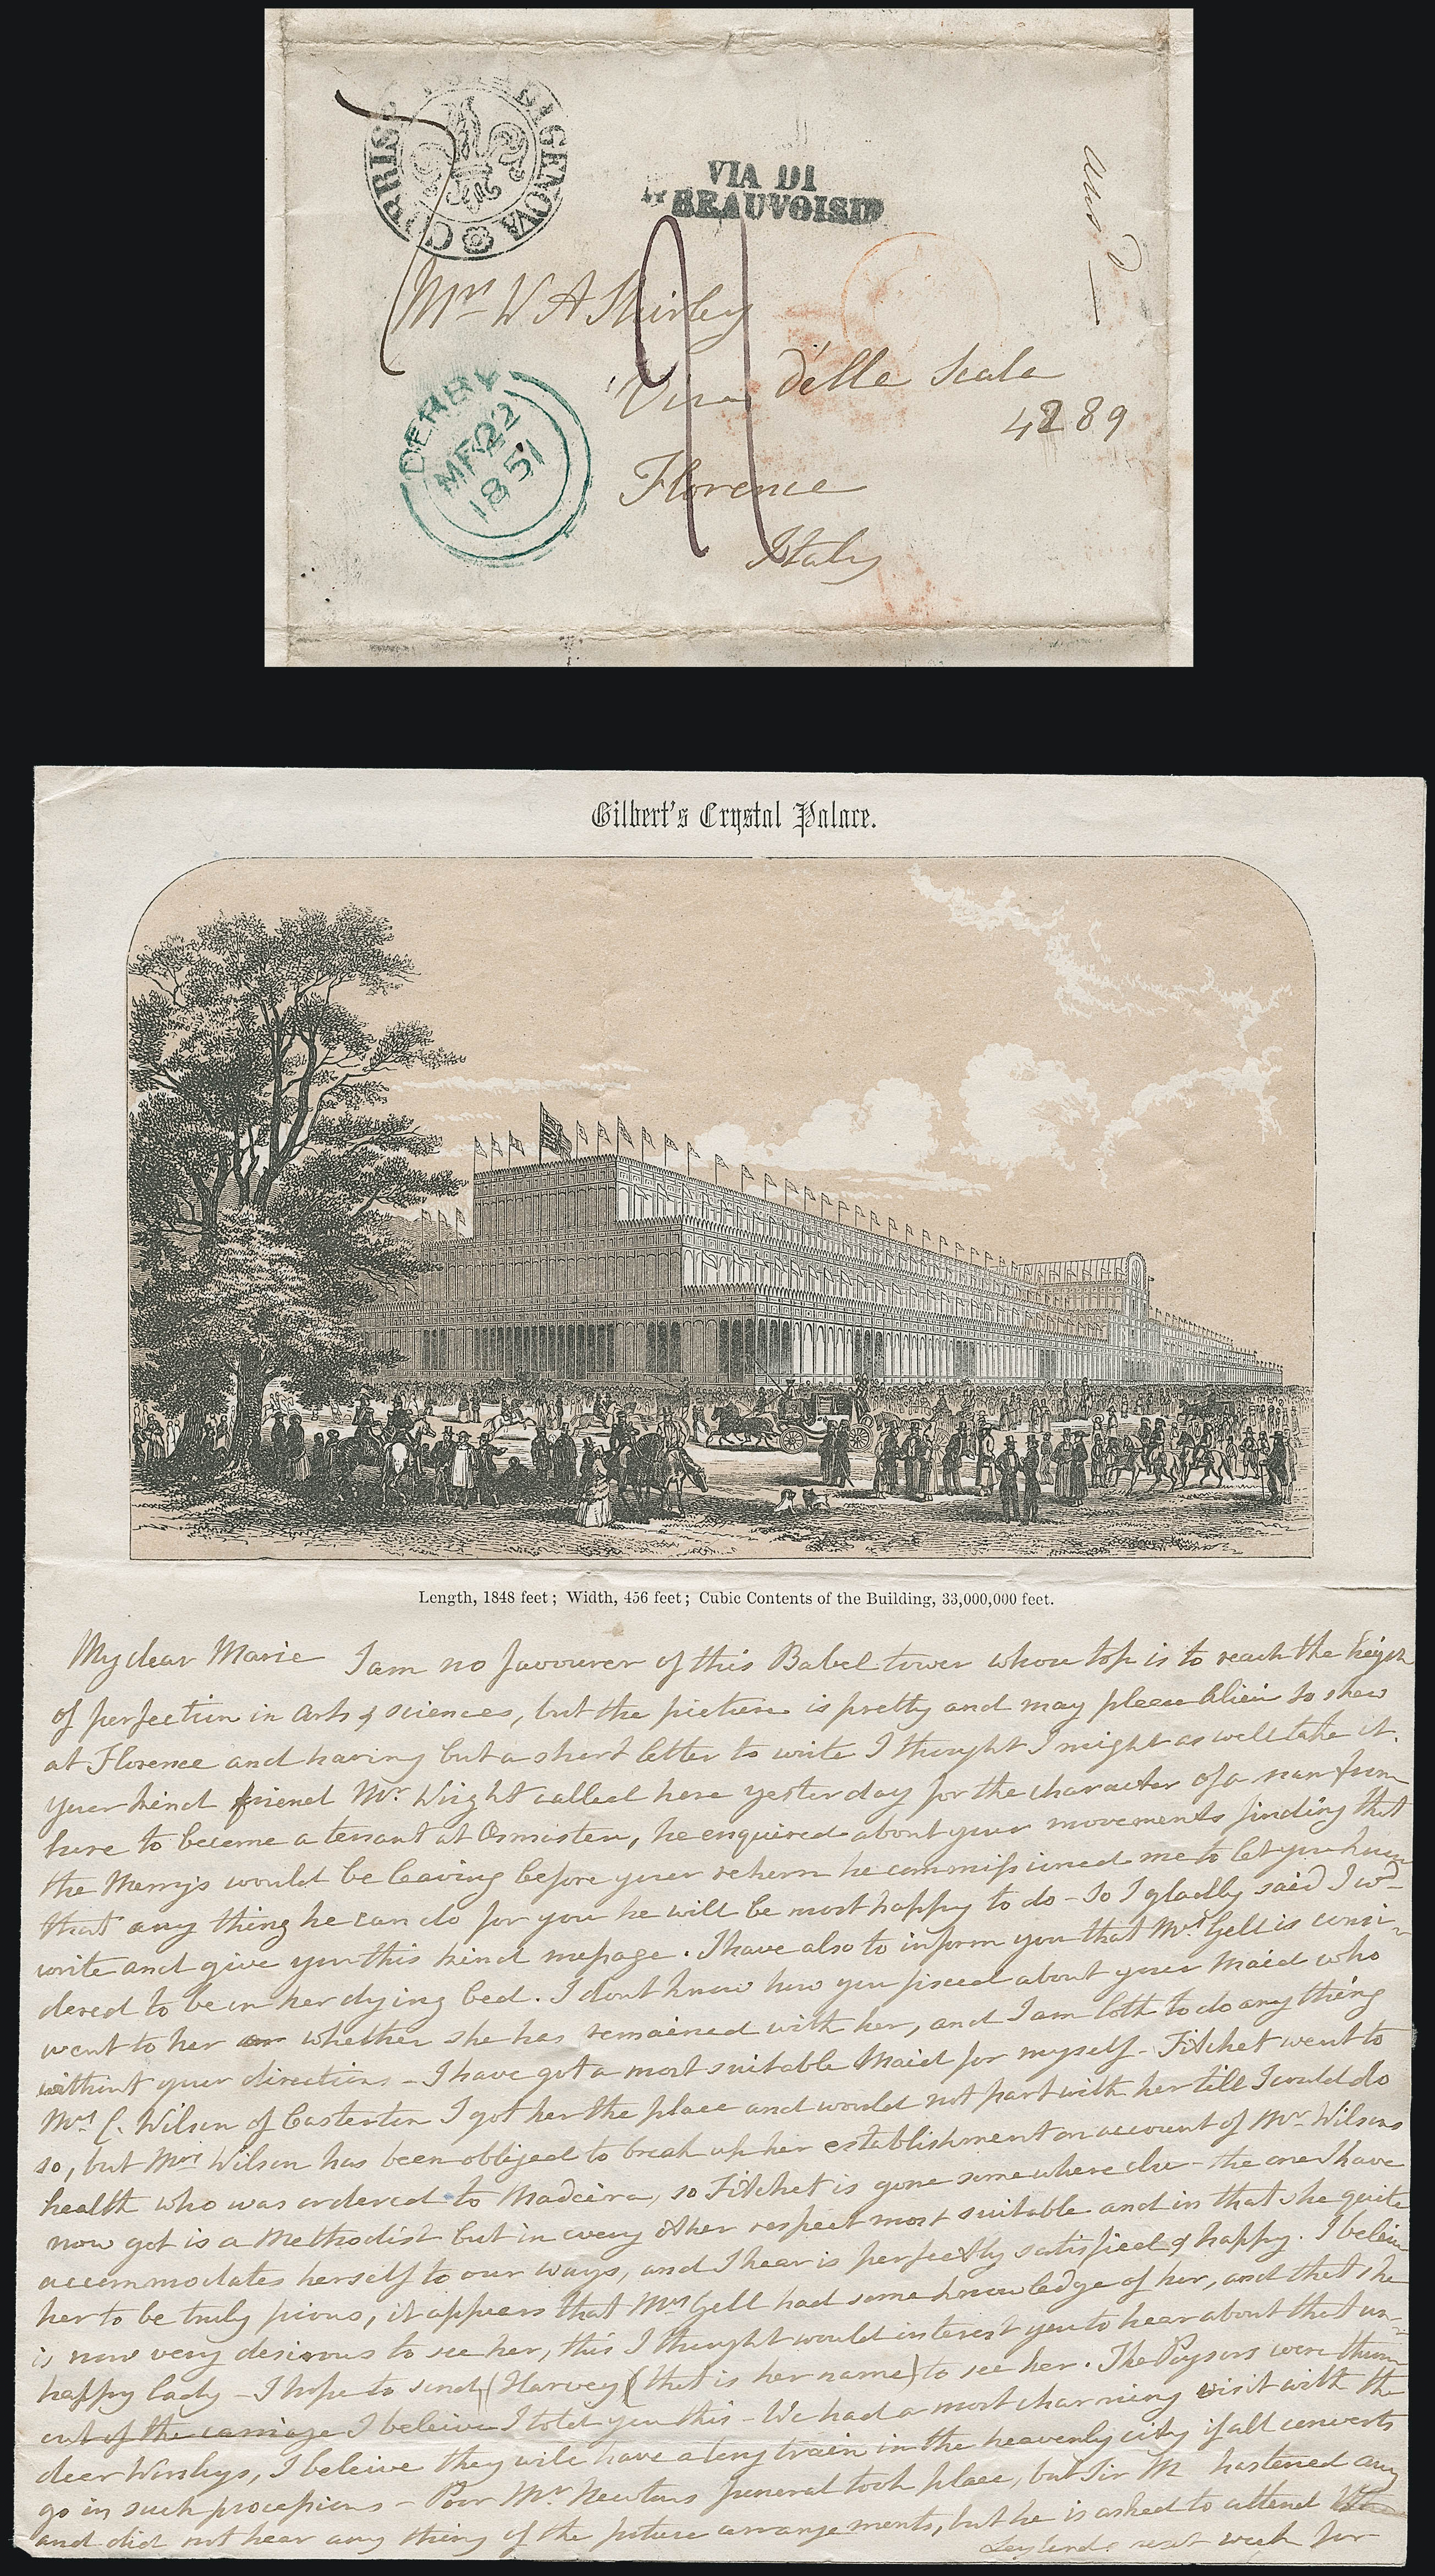 CORRISP ESTERA DI GENOVA
VIA DI
BEAUVOISIN
and
Mrs W A Shirley
Via délle Scala
4289
Florence
Italy
DERBY
MR 22
1851
Gilbert's Crystal Palace.
Length, 1848 feet; Width, 456 feet; Cubic Contents of the Building, 33,000,000 feet.
My dear Marie I am no favourer of this Babel tower whose top is to reach the heigh
of perfection in Arts & sciences, but the picture is pretty and may please to shew
at Florence and having but a short letter to write I thought I might as well take it.
your kind friend Mr. Wright called here yesterday for the character of a man from
here to become a tenant at Osmaston, he enquired about your movements finding that
the Merrys would be leaving before your return he commissioned me to let you know
that any thing he can do for you he will be most happy to do - So I gladly said I wd
write and give you this kind message. I have also to inform you that Mrs. Gell is consi-
dered to be on her dying bed. I dont know how you fixed about your Maid who
went to her or whether she has remained with her, and I am loth to do any thing
without your directions - I have got a most suitable Maid for myself - Fitchet went to
Mrs C. Wilson of Casterton I got her the place and would not part with her till I could do
so, but Mrs Wilson has been obliged to break up her establishment on account of Mr. Wilsons
health who was ordered to Madeira, so Fitchet is gone somewhere else - the one I have
now got is a Methodist but in every other respect most suitable and in that she quite
accommodates herself to our ways, and I hear is perfectly satisfied & happy. I beleive
her to be truly pious, it appears that Mrs Gell had some knowledge of her, and that she
is now very desirous to see her, this I thought would interest you to hear about that un-
happy lady - I hope to send (Harvey (that is her name) to see her. The Poysers were thrown
out of the carriage I beleive I told you this - We had a most charming visit with the
dear I beleive they will have a long train in the heavenly city if all converts
go in such processions - Poor Mr. Newtons funeral took place, but Sir M hastened away
and did not hear any thing of the future arrangements, but he is asked to attend
next week for